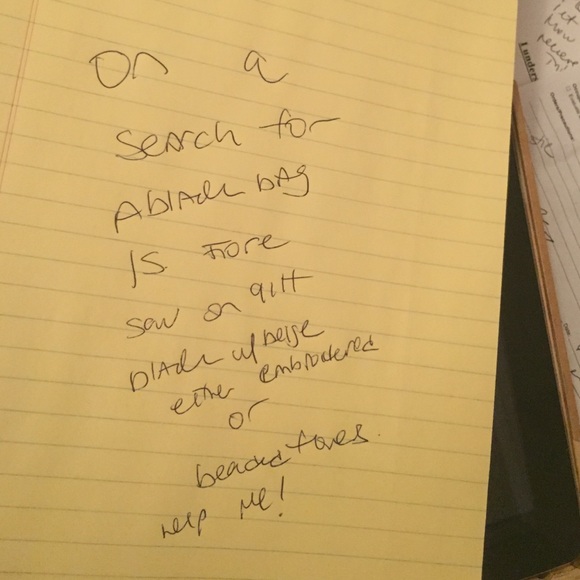 On a
search for
A black bag
Is Fiore
saw on qilt
black w/ beige
either embroidered
or
beaded
help Me!
Lunders
let
Now